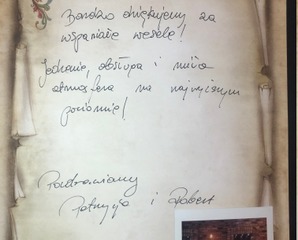 Bardzo dziękujemy za
wspaniałe wesele!
Jedzenie, obsługa i miła
atmosfera na najwyższym
poziomie!
Pozdrawiamy
Patrycja i Robert